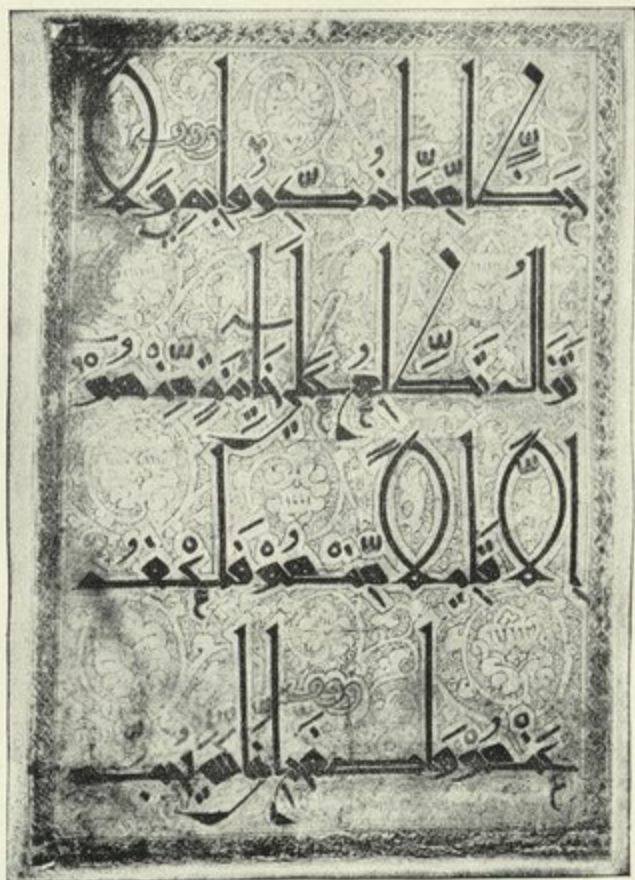 حَظًّا مِّمَّا ذُكِّرُوا بِهِ وَلَا
تَزَالُ تَطَّلِعُ عَلَى خَائِنَةٍ مِّنْهُمْ
إِلَّا قَلِيلًا مِّنْهُمْ فَاعْفُ
عَنْهُمْ وَاصْفَحْ إِنَّ اللَّهَ يُحِبُّ